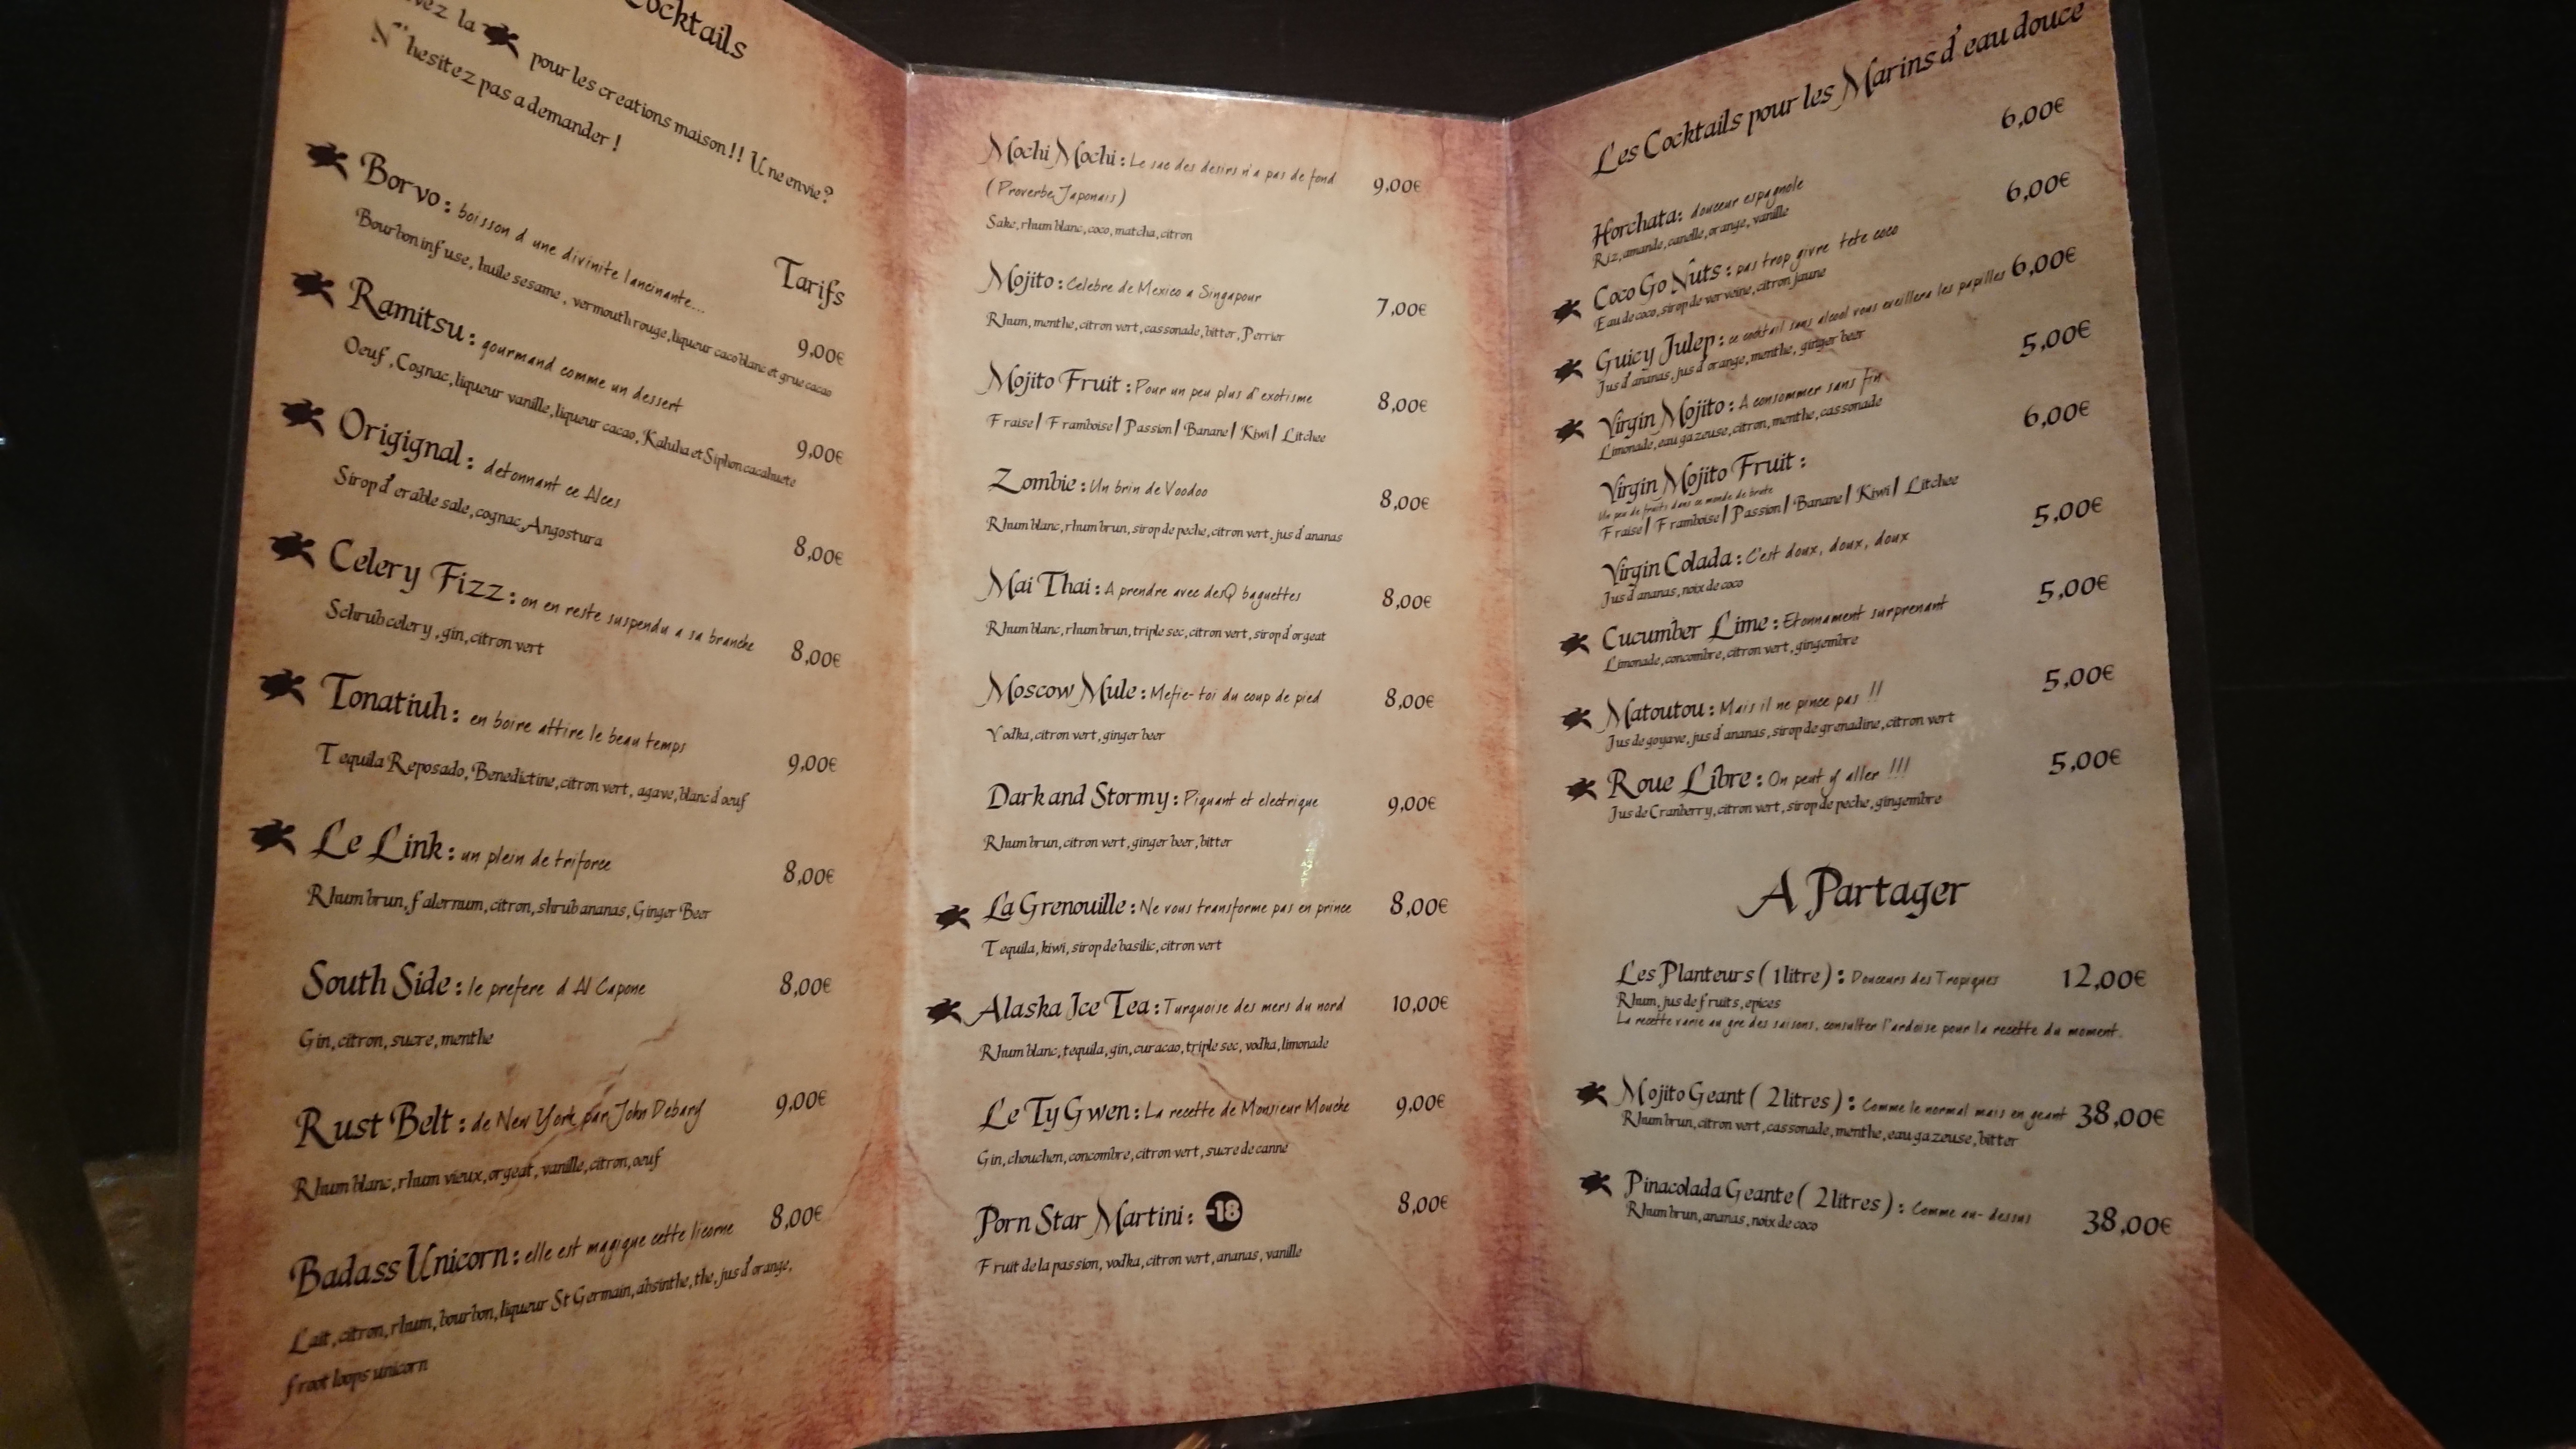 Cocktails
la pour les creations maison!! Une envie?
N'hesitez pas a demander !
Tarifs
Borvo : boisson d une divinite lancinante... 9,00€
Bourbon infuse, huile sesame , vermouth rouge, liqueur caco blanc et grue cacao
Ramitsu : gourmand comme un dessert 9,00€
Oeuf , Cognac, liqueur vanille, liqueur cacao, Kaluha et Siphon cacahuete
Origignal : detonnant ce Alces 8,00€
Sirop d'erable sale, cognac, Angostura
Celery Fizz : on en reste suspendu a sa branche 8,00€
Schrub celery , gin, citron vert
Tonatiuh : en boire attire le beau temps 9,00€
Tequila Reposado, Benedictine, citron vert, agave, blanc d'oeuf
Le Link : un plein de triforce 8,00€
Rhum brun, falernum, citron, shrub ananas, Ginger Beer
South Side : le prefere d Al Capone 8,00€
Gin, citron, sucre, menthe
Rust Belt : de New York par John Debary 9,00€
Rhum blanc, rhum vieux, orgeat, vanille, citron, oeuf
Badass Unicorn : elle est magique cette licorne 8,00€
Lait , citron, rhum, bourbon, liqueur St Germain, absinthe, the, jus d'orange,
froot loops unicorn
Mochi Mochi : Le sac des desirs n'a pas de fond 9,00€
( Proverbe Japonais )
Sake, rhum blanc, coco, matcha, citron
Mojito : Celebre de Mexico a Singapour 7,00€
Rhum, menthe, citron vert, cassonade, bitter, Perrier
Mojito Fruit : Pour un peu plus d'exotisme 8,00€
Fraise | Framboise | Passion | Banane | Kiwi | Litchee
Zombie : Un brin de Voodoo 8,00€
Rhum blanc, rhum brun, sirop de peche, citron vert, jus d'ananas
Mai Thai : A prendre avec desQ baguettes 8,00€
Rhum blanc, rhum brun, triple sec, citron vert, sirop d'orgeat
Moscow Mule : Mefie-toi du coup de pied 8,00€
Vodka, citron vert, ginger beer
Dark and Stormy : Piquant et electrique 9,00€
Rhum brun, citron vert, ginger beer, bitter
La Grenouille : Ne vous transforme pas en prince 8,00€
Tequila, kiwi, sirop de basilic, citron vert
Alaska Ice Tea : Turquoise des mers du nord 10,00€
Rhum blanc, tequila, gin, curacao, triple sec, vodka, limonade
Le Ty Gwen : La recette de Monsieur Mouche 9,00€
Gin, chouchen, concombre, citron vert, sucre de canne
Porn Star Martini : -18 8,00€
Fruit de la passion, vodka, citron vert, ananas, vanille
Les Cocktails pour les Marins d'eau douce
Horchata: douceur espagnole 6,00€
Riz, amande, canelle, orange, vanille
Coco Go Nuts : pas trop givre tete coco 6,00€
Eau de coco, sirop de verveine, citron jaune
Guicy Julep : ce cocktail sans alcool vous eveillera les papilles 6,00€
Jus d'ananas, jus d'orange, menthe, ginger beer
Virgin Mojito : A consommer sans fin 5,00€
Limonade, eau gazeuse, citron, menthe, cassonade
Virgin Mojito Fruit : 6,00€
Un peu de fruits dans ce monde de brute
Fraise | Framboise | Passion | Banane | Kiwi | Litchee
Virgin Colada : C'est doux, doux, doux 5,00€
Jus d'ananas, noix de coco
Cucumber Lime : Etonnament surprenant 5,00€
Limonade, concombre, citron vert, gingembre
Matoutou : Mais il ne pince pas !! 5,00€
Jus de goyave, jus d'ananas, sirop de grenadine, citron vert
Roue Libre : On peut y aller !!! 5,00€
Jus de Cranberry, citron vert, sirop de peche, gingembre
A Partager
Les Planteurs ( 1 litre ) : Douceurs des Tropiques 12,00€
Rhum, jus de fruits, epices
La recette varie au gre des saisons, consulter l'ardoise pour la recette du moment.
Mojito Geant ( 2 litres ) : Comme le normal mais en geant 38,00€
Rhum brun, citron vert, cassonade, menthe, eau gazeuse, bitter
Pinacolada Geante ( 2 litres ) : Comme au-dessus 38,00€
Rhum brun, ananas, noix de coco